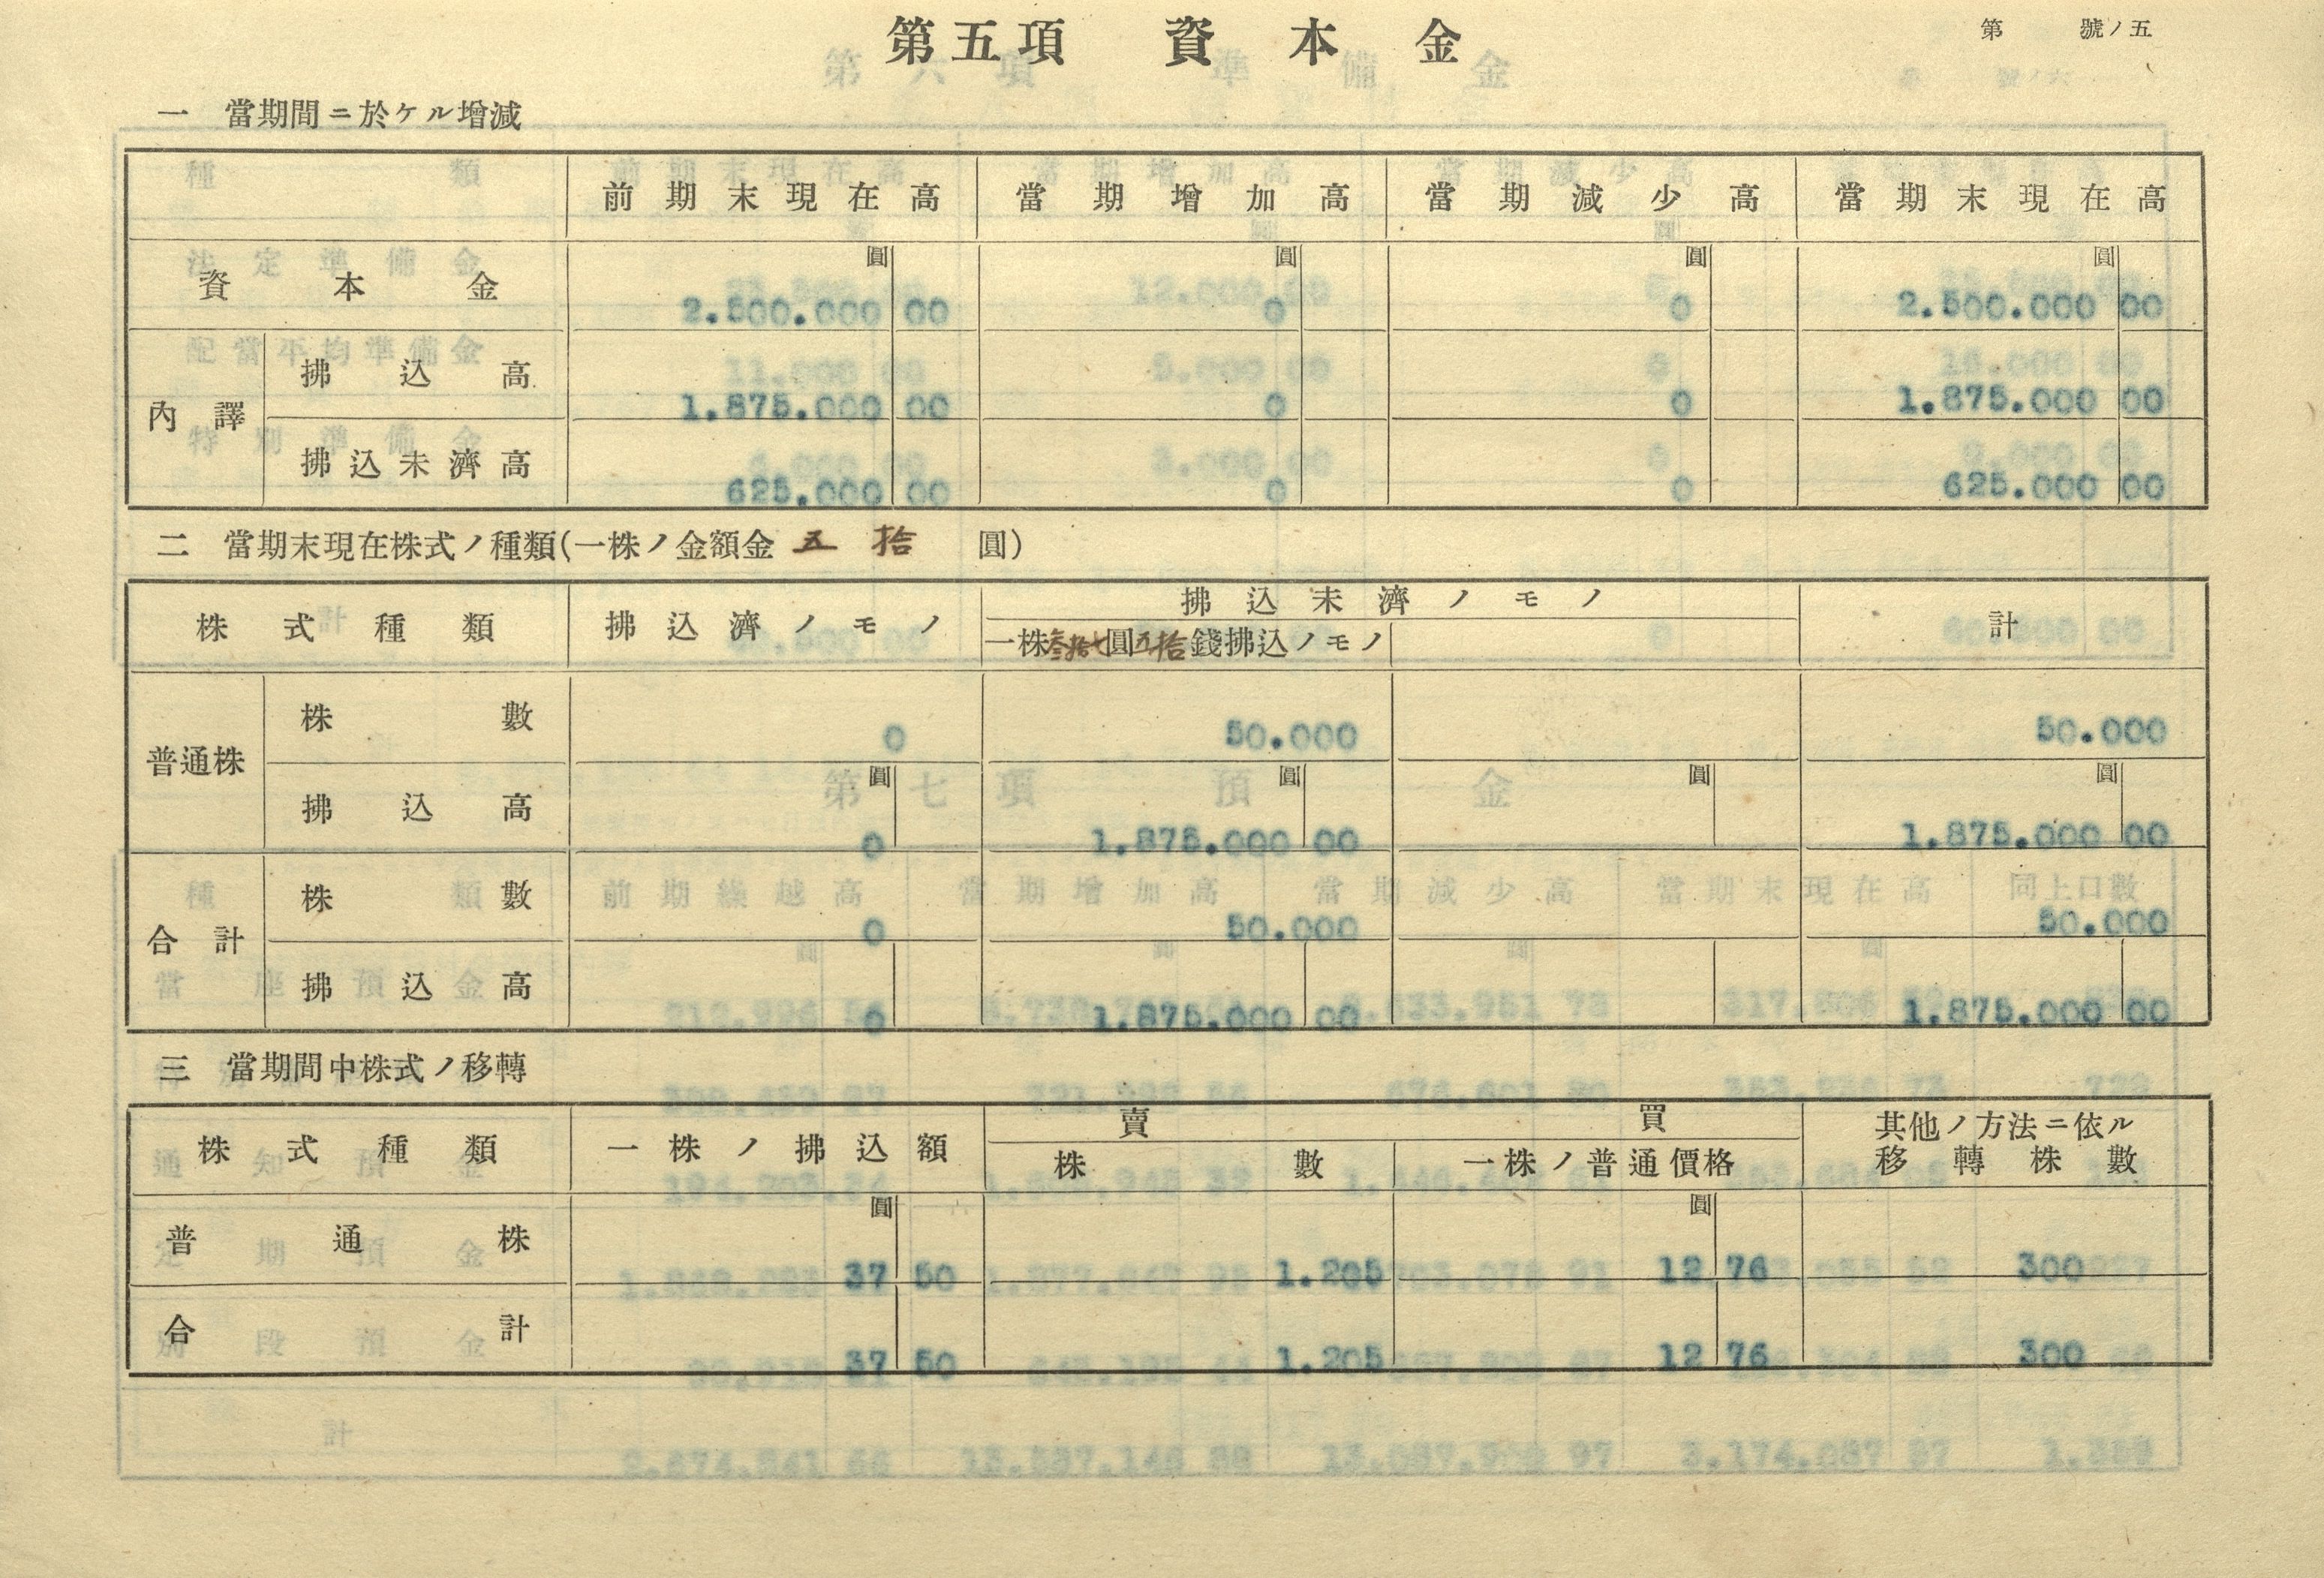 第五項 資本金
第 號ノ五
一 當期間ニ於ケル增減
前期末現在高 當期增加高 當期減少高 當期末現在高
圓 圓 圓 圓
資本金 2.500.000 00 0 0 2.500.000 00
內譯
拂込高 1.875.000 00 0 0 1.875.000 00
拂込未濟高 625.000 00 0 0 625.000 00
二 當期末現在株式ノ種類(一株ノ金額金 五拾 圓)
株式種類 拂込濟ノモノ 拂込未濟ノモノ 計
一株叁拾七圓五拾錢拂込ノモノ
普通株
株數 0 50.000 50.000
圓 圓 圓 圓
拂込高 0 1.875.000 00 1.875.000 00
合計
株數 0 50.000 50.000
拂込高 0 1.875.000 00 1.875.000 00
三 當期間中株式ノ移轉
株式種類 一株ノ拂込額 賣買 其他ノ方法ニ依ル
株數 一株ノ普通價格 移轉株數
圓 圓
普通株 37 50 1.205 12 76 300
合計 37 50 1.205 12 76 300